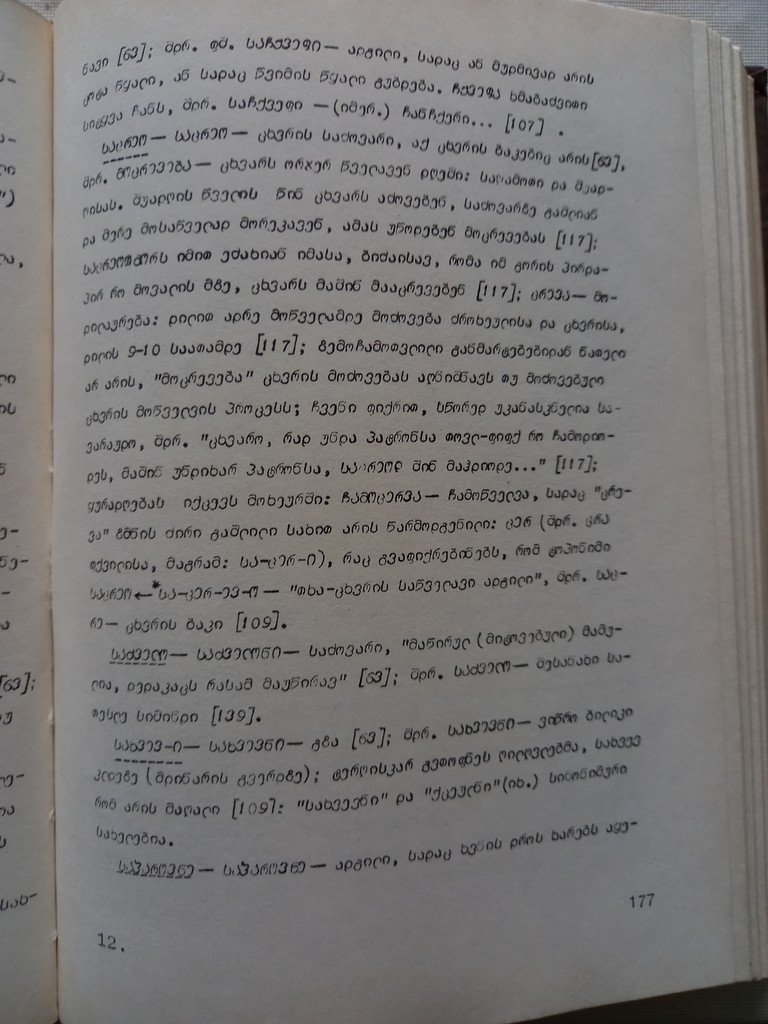 ნავი [63]; შდრ. ფშ. საჩქვეფი — ადგილი, სადაც ან მუდმივად არის
ცოტა წყალი, ან სადაც წვიმის წყალი გუბდება. ჩქვეფა ხმაბაძვითი
სიტყვა ჩანს, შდრ. საჩქვეფი — (იმერ.) ჩანჩქერი... [107] .
საცრეო — საცრეო — ცხვრის საძოვარი, აქ ცხვრის ბაკებიც არის [63],
შდრ. მოცრევება — ცხვარს ორჯერ წველავენ დღეში: საღამოთი და შუად-
ღისას. შუადღის წველის წინ ცხვარს აძოვებენ, საძოვარზე გაშლიან
და მერე მოსაწველად მორეკავენ, ამას უწოდებენ მოცრევებას [117];
იმით ეძახიან იმასა, ბიძაისავ, რომა იმ გორის პირდა-
პირ რო მოვალის მზე, ცხვარს მაშინ მააცრევებენ [117]; ცრევა — მო-
დილაურება: დილით ადრე მოწველამდე მოძოვება ძროხეულისა და ცხვრისა,
დილის 9-10 საათამდე [117]; ზემოჩამოთვლილი განმარტებებიდან ნათელი
არ არის, "მოცრევება" ცხვრის მოძოვებას აღნიშნავს თუ მოძოვებული
ცხვრის მოწველვის პროცესს; ჩვენი ფიქრით, სწორედ უკანასკნელია სა-
ვარაუდო, შდრ. "ცხვარო, რად უნდა პატრონსა თოვლ-ფიფქ რო ჩამოდიო-
დეს, მაშინ უნდიხარ პატრონსა, საცრეოდ შინ მაჰდიოდე..." [117];
ყურადღებას იქცევს მოხეური: ჩამოცერვა — ჩამოწველვა, სადაც "ცრე-
ვა" ზმნის ძირი გაშლილი სახით არის წარმოდგენილი: ცერ (შდრ. ცრა
ფქვილისა, მაგრამ: სა-ცერ-ი), რაც გვაფიქრებინებს, რომ ტოპონიმი
საცრეო ← *სა-ცერ-ევ-ო — "თხა-ცხვრის საწველავი ადგილი", შდრ. საც-
რე — ცხვრის ბაკი [109].
საძველო — საძველონი — საძოვარი, "მაწირულ (მიტოვებული) მამუ-
ლია, დედაკაცს რასამ მაუწირავ" [63]; შდრ. საძველო — შესანახი სა-
თესლე სიმინდი [139].
სახვევ-ი — სახვევნი — გზა [63]; შდრ. სახვევნი — ვიწრო ბილიკი
კლდეზე (მდინარის გვერდზე); ტერღისკარ გვთოფნეს ღილღვლებმა, სახვევ
რომ არის მაღალი [109]: "სახვევნი" და "ქცეულნი" (იხ.) სინონიმური
სახელებია.
საჴაროვნე — საჴაროვნე — ადგილი, სადაც ხვნის დროს ხარებს აყე-
177
12.